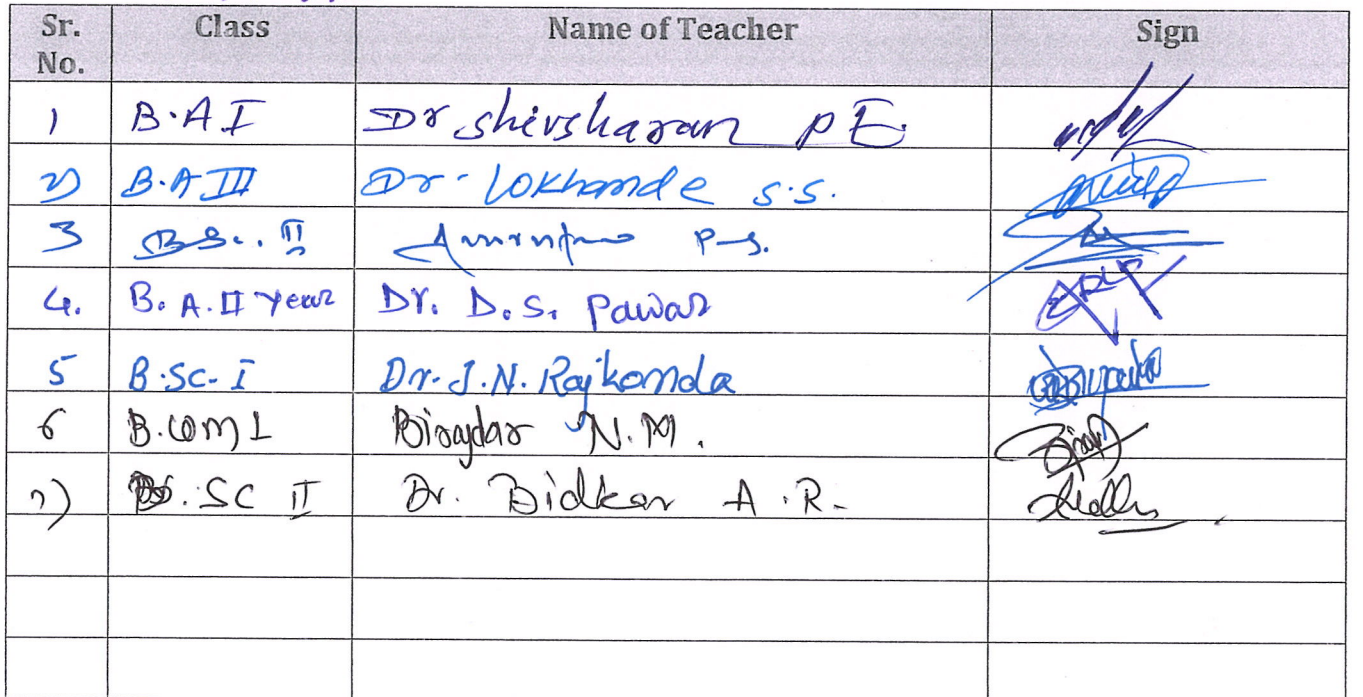 Sr. No. Class Name of Teacher Sign
1 B.A I Dr shivsharan P E.
2) B.A III Dr. Lokhande S.S.
3 B Sc. II P.S.
4. B. A. II Year Dr. D. S. Pawar
5 B.SC. I Dr. J. N. Rajkonda
6 B.Com I Birajdar N. M.
7) B.SC II Dr. Bidkar A. R.